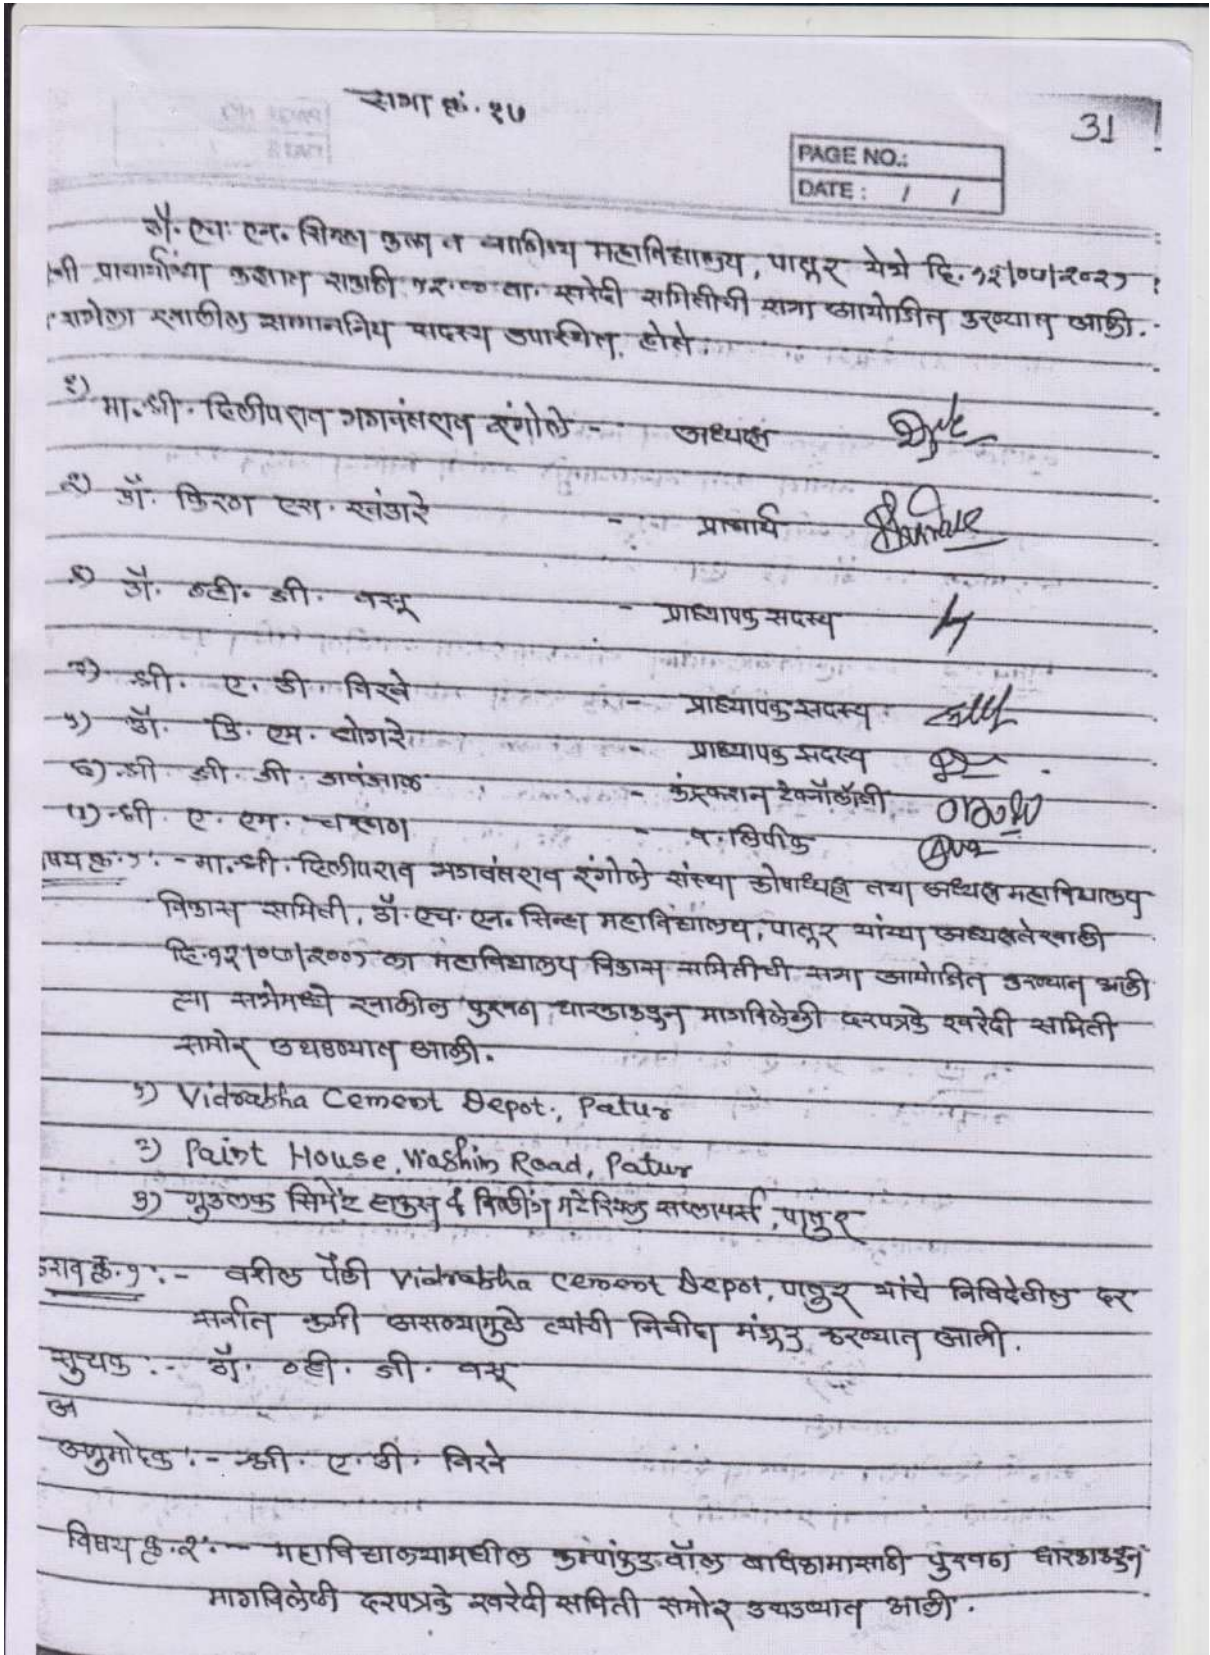 सभा क्रं. १७
31
PAGE NO.:
DATE : / /
डॉ. एच. एन. सिन्हा कला व वाणिज्य महाविद्यालय, पातूर येथे दि. १२/०७/२०२१
प्राचार्यांच्या कक्षात सकाळी १२.०० वा. खरेदी समितीची सभा आयोजित करण्यात आली.
सभेला खालील सन्माननिय सदस्य उपस्थित होते.
१) मा. श्री. दिलीपराव भगवंतराव इंगोले - अध्यक्ष
२) डॉ. किरण एस. खंडारे - प्राचार्य
३) डॉ. व्ही. जी. वसू - प्राध्यापक सदस्य
४) श्री. ए. डी. विरवे - प्राध्यापक सदस्य
५) डॉ. डि. एम. - प्राध्यापक सदस्य
६) श्री. जी. जी. - कंस्ट्रक्शन टेक्नॉलॉजी
७) श्री. ए. एम. चव्हाण - व. लिपीक
विषय क्र. १ :- मा. श्री. दिलीपराव भगवंतराव इंगोले संस्था कोषाध्यक्ष तथा अध्यक्ष महाविद्यालय
विकास समिती, डॉ. एच. एन. सिन्हा महाविद्यालय, पातूर यांच्या अध्यक्षतेखाली
दि. १२/०७/२००१ का महाविद्यालय विकास समितीची सभा आयोजित करण्यात आली
त्या सभेमध्ये खालील पुरवठा धारकाकडुन मागविलेली दरपत्रके खरेदी समिती
समोर उघडण्यात आली.
१) Vidrabha Cement Depot., Patur
२) Paint House, Washim Road, Patur
३) गुडलक सिमेंट हाऊस & बिल्डींग मटेरियल सप्लायर्स, पातुर
ठराव क्र. १ :- वरील पैकी Vidrabha Cement Depot, पातुर यांचे निविदेतील दर
सर्वात कमी असल्यामुळे त्यांची निवीदा मंजूर करण्यात आली.
सुचक :- डॉ. व्ही. जी. वसू
अ
अनुमोदक :- श्री. ए. डी. विरवे
विषय क्र. २ :- महाविद्यालयामधील कम्पांऊड वॉल बांधकामासाठी पुरवठा धारकाकडुन
मागविलेली दरपत्रके खरेदी समिती समोर उघडण्यात आली.